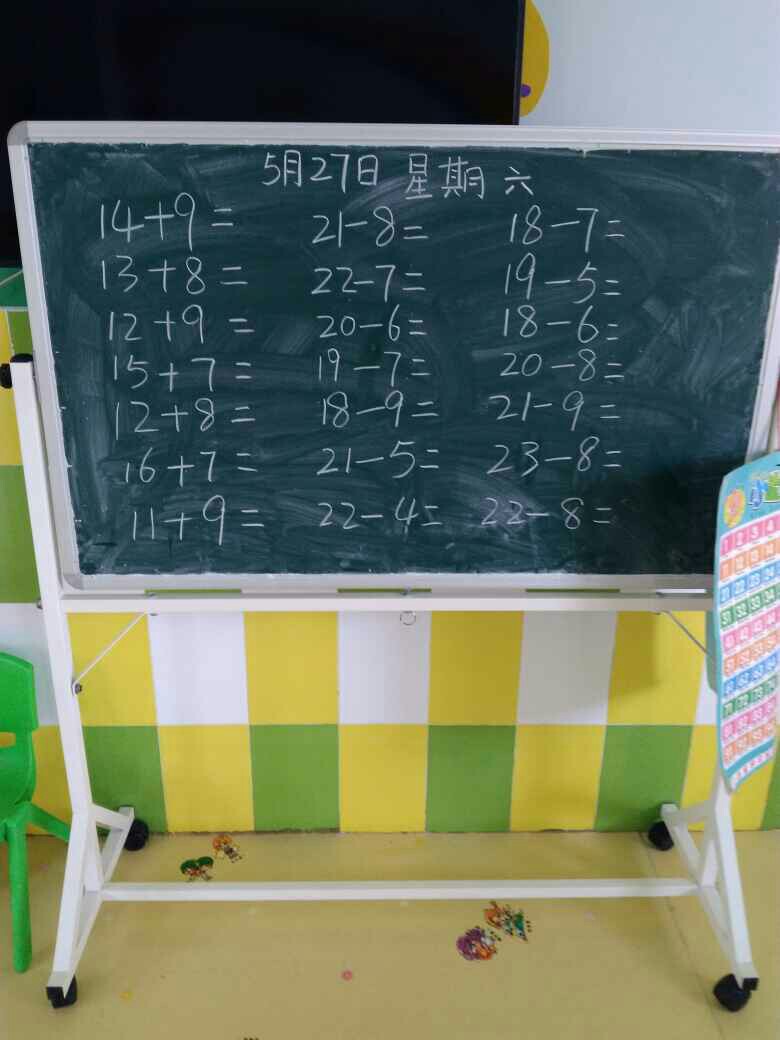 5月27日 星期六
14+9= 21-8= 18-7=
13+8= 22-7= 19-5=
12+9= 20-6= 18-6=
15+7= 19-7= 20-8=
12+8= 18-9= 21-9=
16+7= 21-5= 23-8=
11+9= 22-4= 22-8=